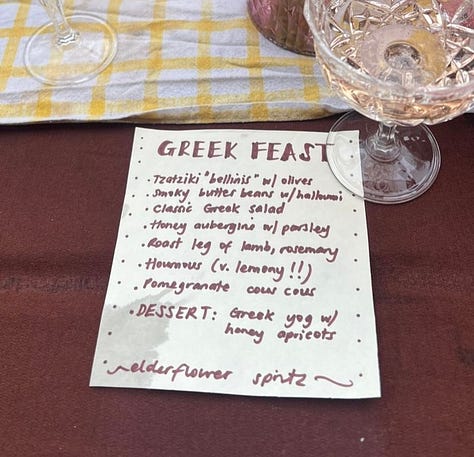 GREEK FEAST
• Tzatziki "bellinis" w/ olives
• Smoky butter beans w/ halloumi
• Classic Greek salad
• Honey aubergine w/ parsley
• Roast leg of lamb, rosemary
• Houmous (v. lemony !!)
• Pomegranate cous cous
• DESSERT: Greek yog w/
honey apricots
~elderflower spritz~